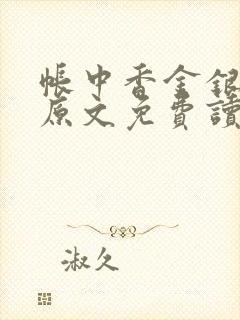 帳中香金銀
原文免費讀
淑久